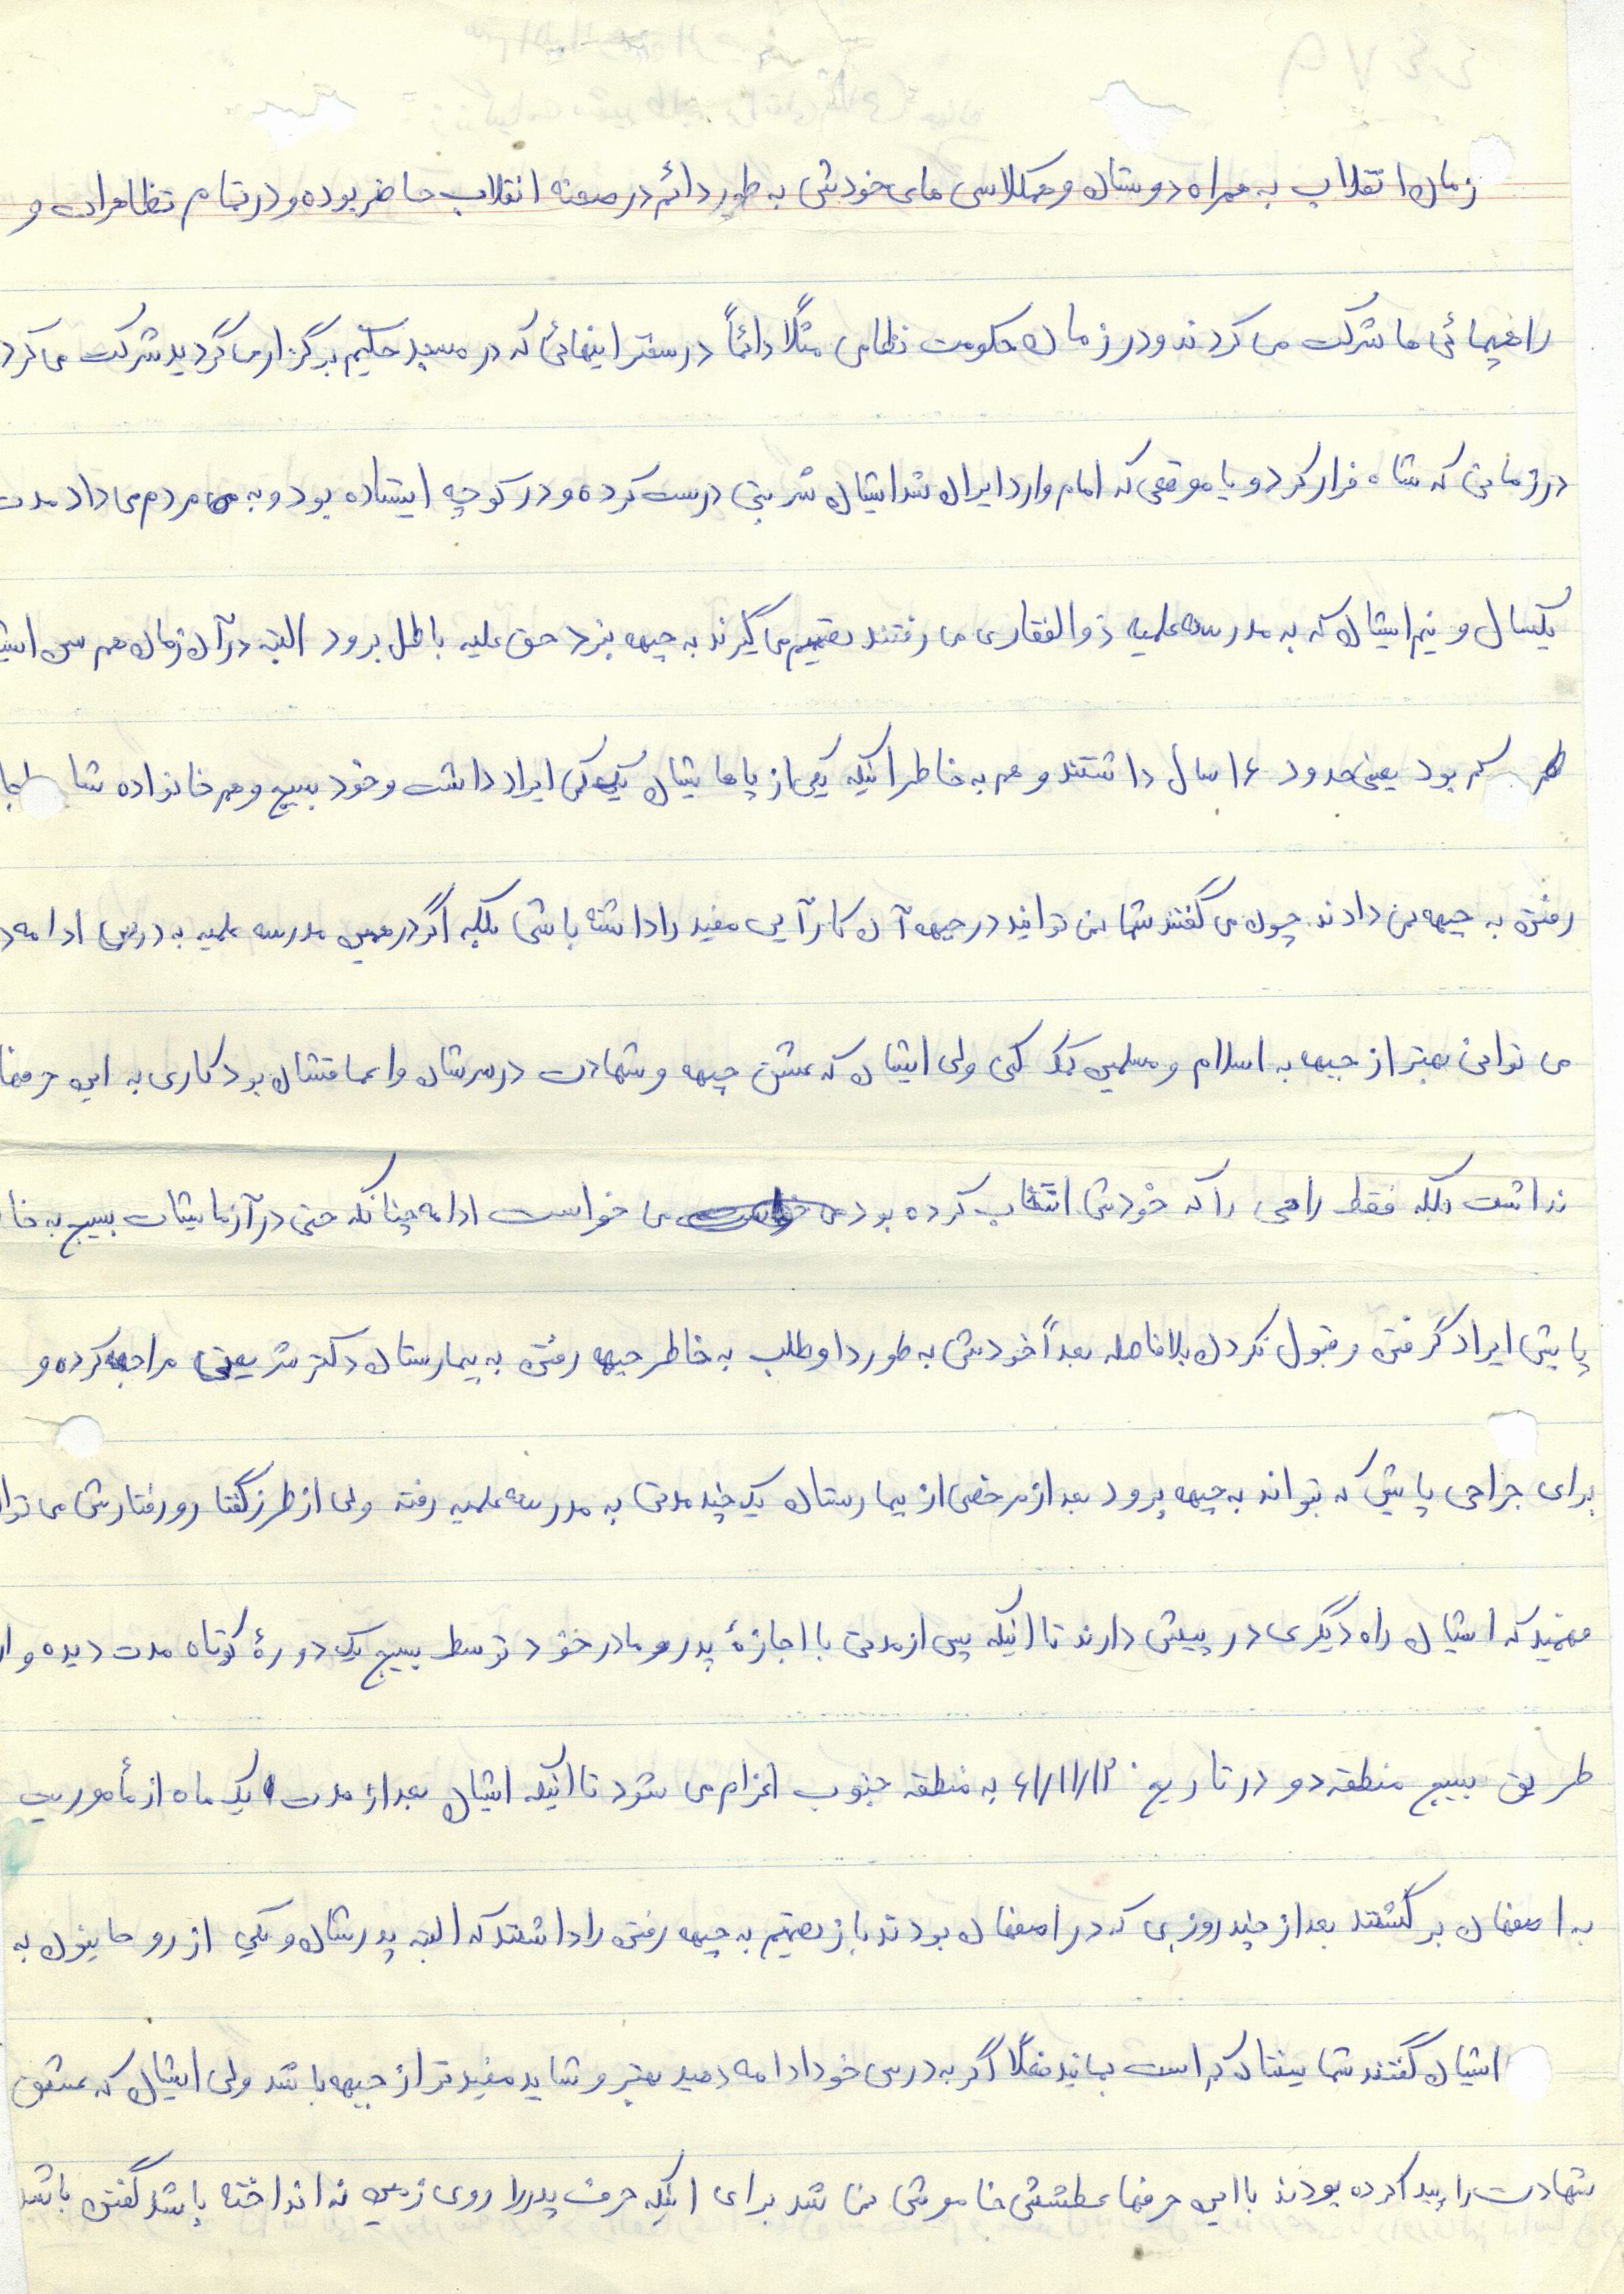 زمان انقلاب به همراه دوستان و همکلاسی های خودش به طور دائم در صحنه انقلاب حاضر بوده و در تمام تظاهرات و
راهپیمائی ها شرکت می کردند و در زمان حکومت نظامی مثلاً دائماً در سخنرانیهائی که در مسجد حکیم برگزار می گردید شرکت می کرد
در زمانی که شاه فرار کرد و یا موقعی که امام وارد ایران شد ایشان شربتی درست کرده و در کوچه ایستاده بود و به مردم می داد مدت
یکسال و نیم ایشان که به مدرسه علمیه ذوالفقاری می رفتند تصمیم می گیرند به جبهه نبرد حق علیه باطل برود البته در آن زمان هم سن
هم کم بود یعنی حدود ۱۶ سال داشتند و هم به خاطر اینکه یکی از پاهایشان یک کمی ایراد داشت و خود بسیج و هم خانواده شا
رفتن به جبهه نمی دادند. چون می گفتند شما نمی توانید در جبهه آن کارآیی مفید را داشته باشی بلکه اگر در همین مدرسه علمیه به درس ادامه د
می توانی بهتر از جبهه به اسلام و مسلمین کمک کنی ولی ایشان که عشق جبهه و شهادت در سرشان و اعماقشان بود کاری به این حرفها
نداشت بلکه فقط راهی را که خودش انتخاب کرده بود می خواست ادامه چنانکه حتی در آزمایشات بسیج به خا
پایش ایراد گرفتن و قبول نکردن بلافاصله بعداً خودش به طور داوطلب به خاطر جبهه رفتن به بیمارستان دکتر شریعتی مراجعه کرده و
برای جراحی پایش که بتواند به جبهه برود بعد از مرخصی از بیمارستان یک چند مدتی به مدرسه علمیه رفته ولی از طرز گفتار و رفتارش می توا
فهمید که ایشان راه دیگری در پیش دارند تا اینکه پس از مدتی با اجازهٔ پدر و مادر خود توسط بسیج یک دورهٔ کوتاه مدت دیده و از
طریق بسیج منطقه دو در تاریخ ۶۱/۱۱/۱۲ به منطقه جنوب اعزام می شود تا اینکه ایشان بعد از مدت یک ماه از مأموریت
به اصفهان برگشتند بعد از چند روزی که در اصفهان بودند باز تصمیم به جبهه رفتن را داشتند که البته پدرشان و یکی از روحانیون به
ایشان گفتند شما سنتان کم است بمانید فعلاً اگر به درس خود ادامه دهید بهتر و شاید مفیدتر از جبهه باشد ولی ایشان که عشق
شهادت را پیدا کرده بودند با این حرفها عطشش خاموش نمی شد برای اینکه حرف پدر را روی زمین نه انداخته باشد گفتن باشد